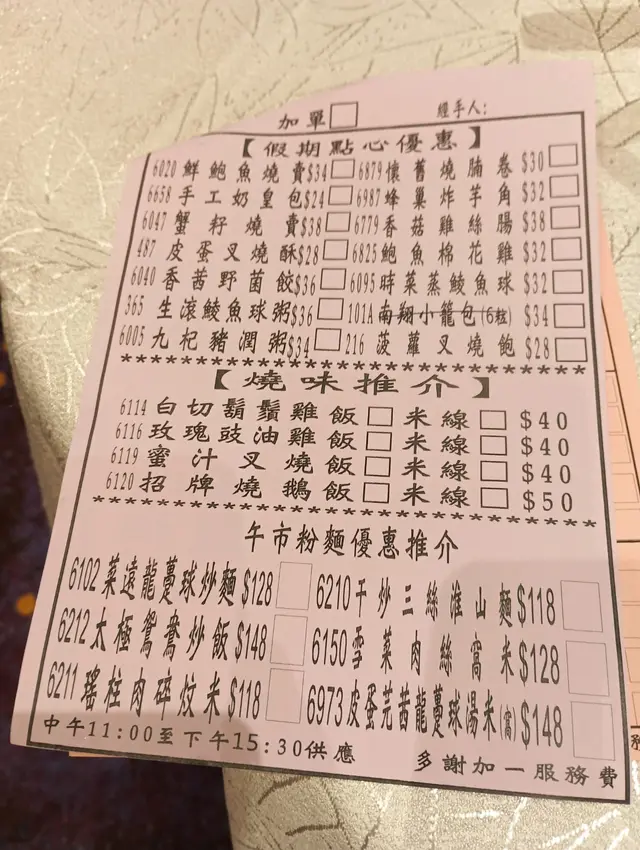 加單□ 經手人:
【假期點心優惠】
6020 鮮鮑魚燒賣$34□ 6879懷舊燒腩卷 $30□
6658 手工奶皇包$24□ 6987蜂巢炸芋角 $32□
6047 蟹籽燒賣$38□ 6779香菇雞絲腸 $38□
487 皮蛋叉燒酥$28□ 6825鮑魚棉花雞 $32□
6040 香茜野菌餃$36□ 6095時菜蒸鯪魚球 $32□
365 生滾鯪魚球粥$36□ 101A南翔小籠包(6粒) $34□
6005 九杞豬潤粥$34□ 216 菠蘿叉燒飽 $28□
【燒味推介】
6114 白切鬍鬚雞飯□米線□$40
6116 玫瑰豉油雞飯□米線□$40
6119 蜜汁叉燒飯□米線□$40
6120 招牌燒鵝飯□米線□$50
午市粉麵優惠推介
6102 菜遠龍躉球炒麵 $128□ 6210干炒三絲淮山麵 $118□
6212 太極鴛鴦炒飯 $148□ 6150雪菜肉絲窩米 $128□
6211 瑤柱肉碎炆米 $118□ 6973皮蛋芫茜龍躉球湯米(窩) $148□
中午11:00至下午15:30供應 多謝加一服務費